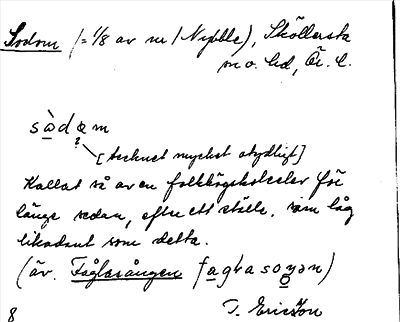 Sodom (= 1/8 av nr 1 Nybble), Sköllersta
sn o. hd, Ör. l.
sòdam
[tecknet mycket otydligt]
Kallat så av en folkhögskoleelev för
länge sedan, efter ett ställe, som låg
likadant som detta.
(äv. Fåglasången fagləsoŋən)
T. Ericsson
8